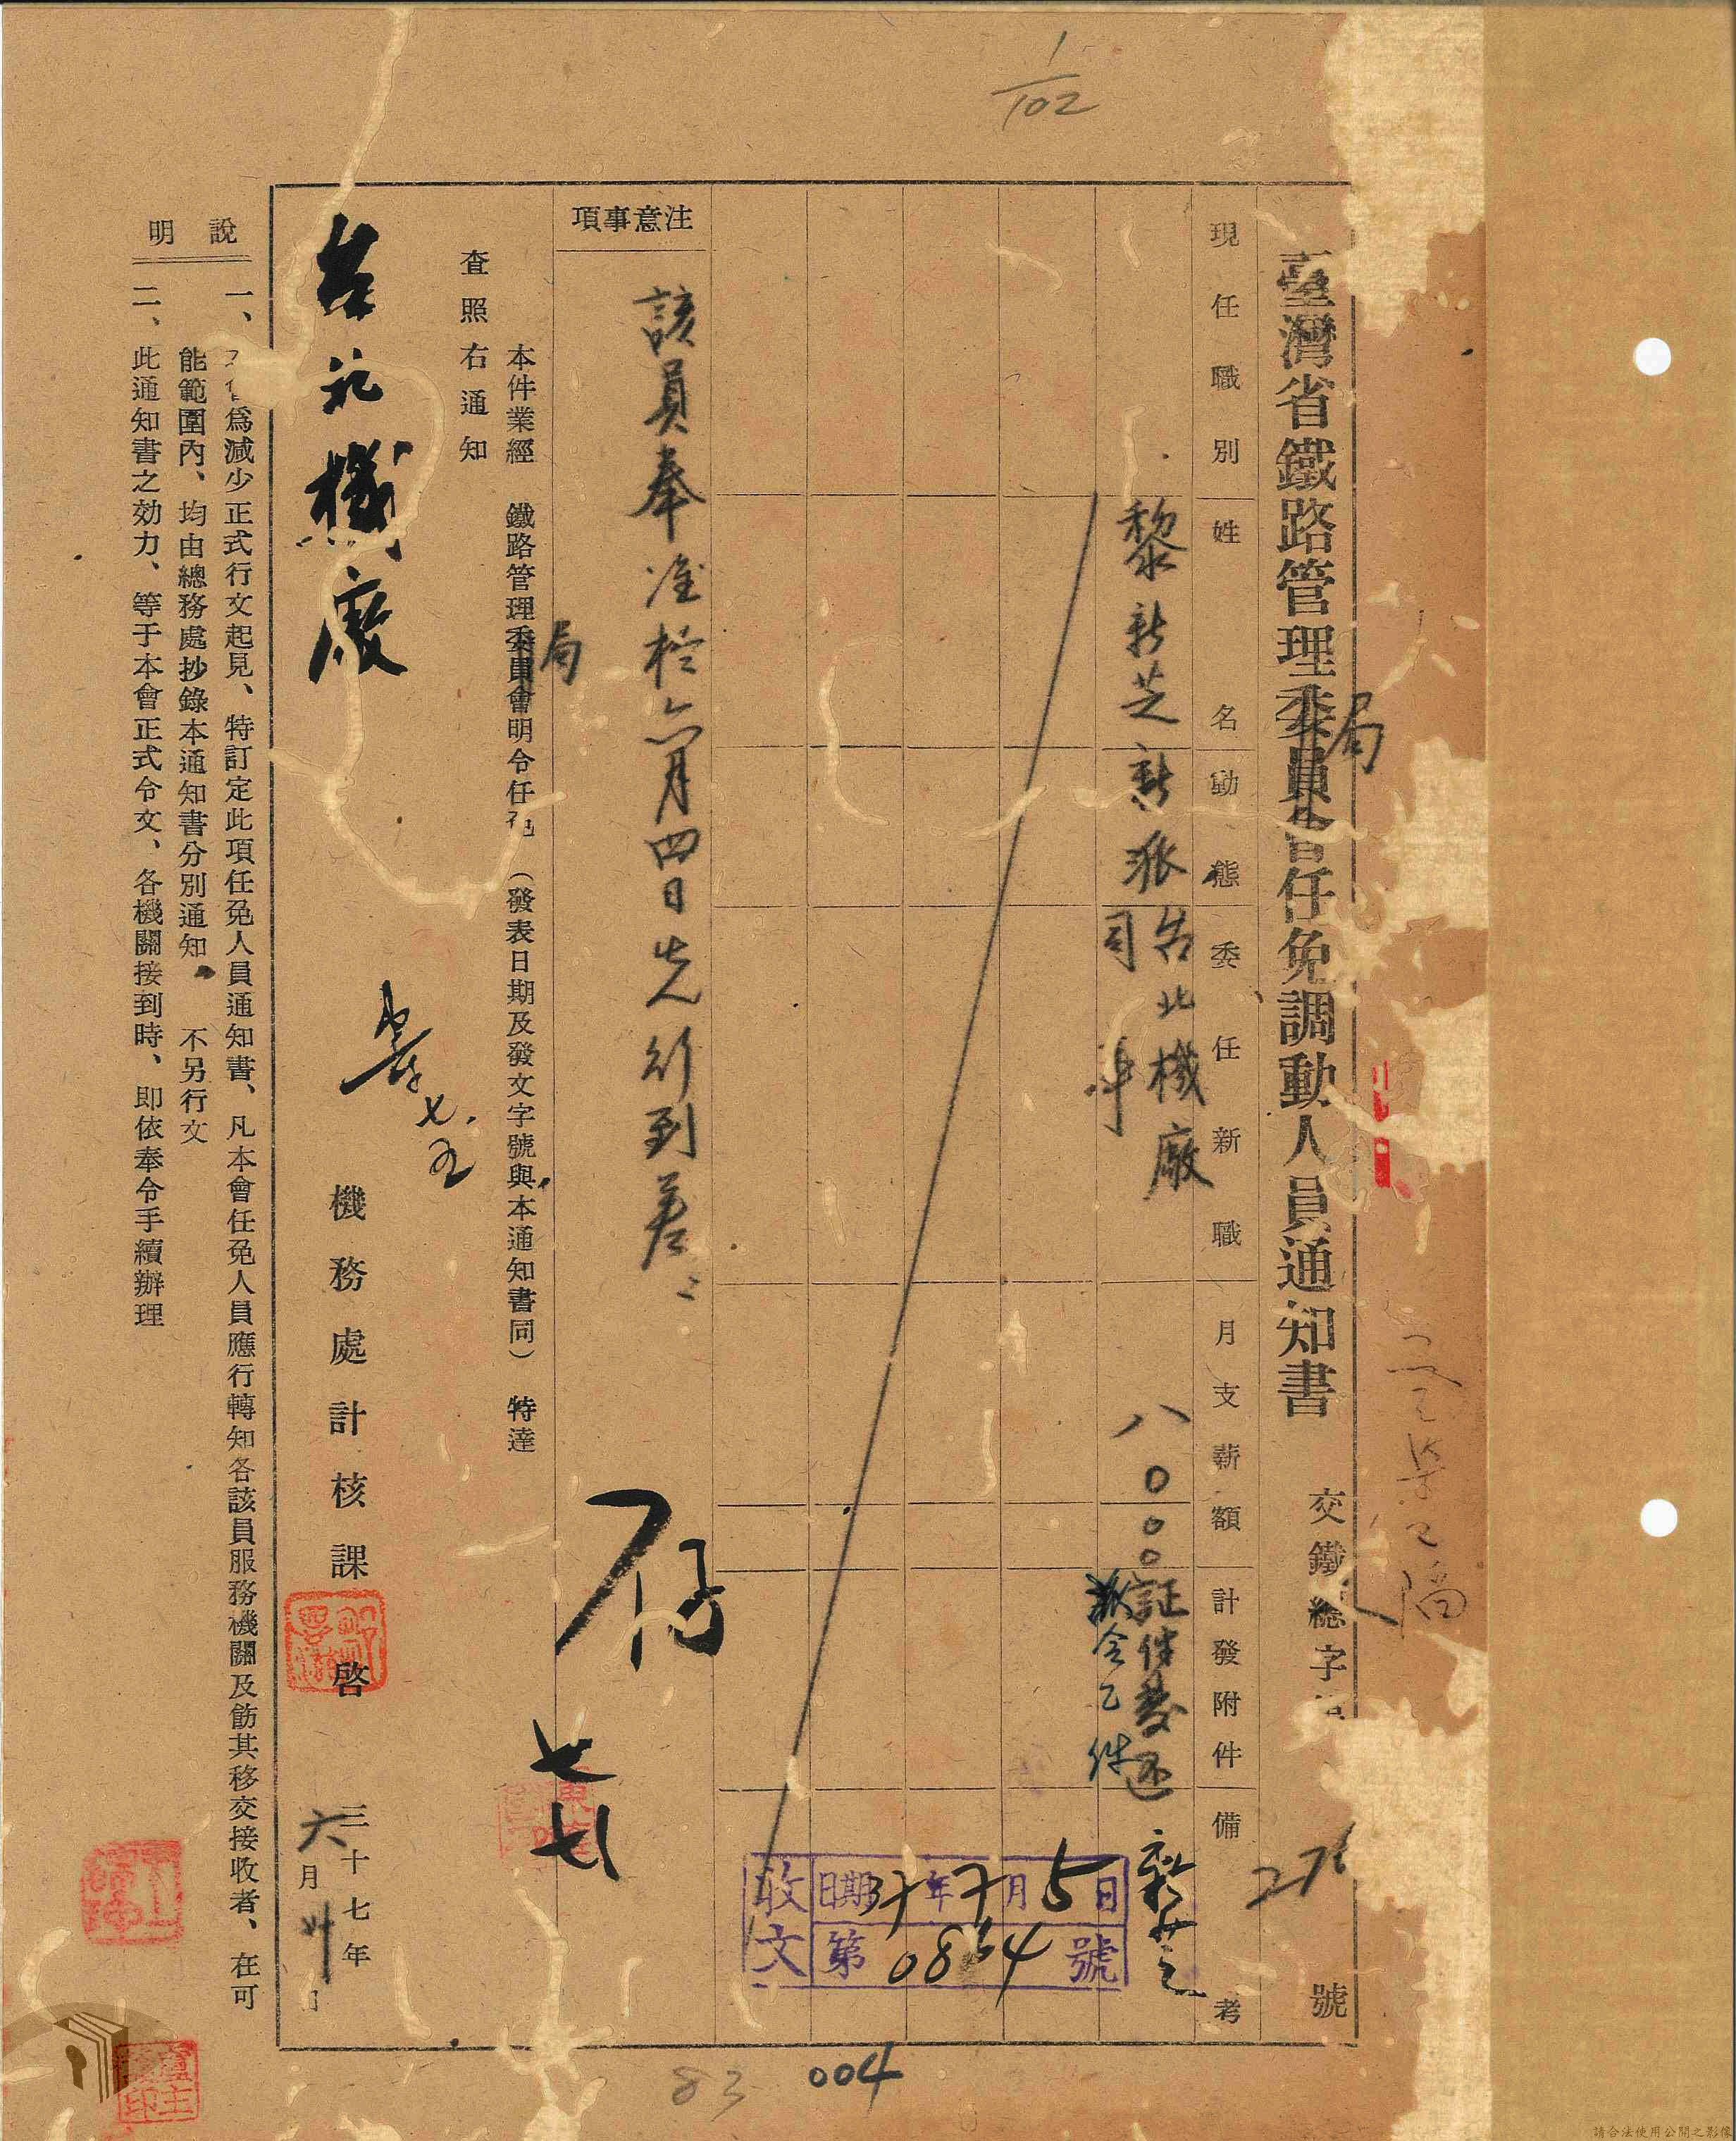 1/102
臺灣省鐵路管理委員會任免調動人員通知書
局
交鐵總字
號
現任職別
姓名
動態
委任新職
月支薪額
計發附件
備考
黎新芝
新派
台北機廠
司
八〇〇〇
証件發還
派令乙件
新芝
注意事項
該員奉准於六月四日先行到差
本件業經 鐵路管理委員會明令任免（發表日期及發文字號與本通知書同） 特達
局
查照右通知
台北機廠
機務處計核課 啓
三十七年
六月卅日
七七
七五
收文
日期37年7月5日
第08 4號
說明
一、 爲減少正式行文起見、特訂定此項任免人員通知書、凡本會任免人員應行轉知各該員服務機關及飭其移交接收者、在可
能範圍內、均由總務處抄錄本通知書分別通知 不另行文
二、此通知書之効力、等于本會正式令文、各機關接到時、即依奉令手續辦理
83
004
請合法使用公開之影像